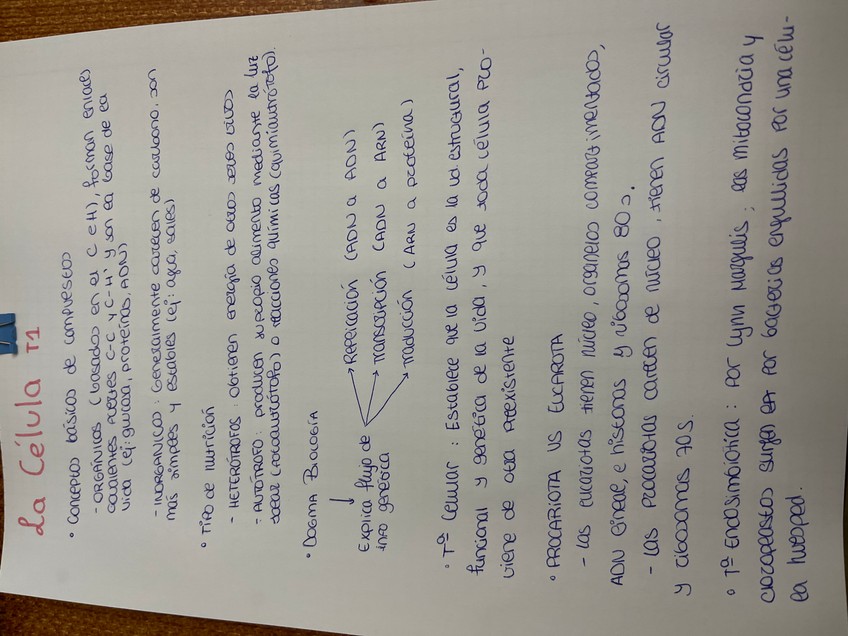 La Célula T1
• Conceptos básicos de compuestos
- ORGÁNICOS (basados en el C e H), forman enlaces
covalentes fuertes C-C y C-H' y son la base de la
vida (ej: glucosa, proteínas, ADN)
- INORGÁNICOS: Generalmente carecen de carbono, son
más simples y estables (ej: agua, sales)
• Tipo de nutrición
- HETERÓTROFOS: obtienen energía de otros seres vivos
- AUTÓTROFO: producen su propio alimento mediante la luz
solar (fotoautótrofo) o reacciones químicas (quimioautótrofo).
• DOGMA BIOLOGÍA
Explica flujo de
info genética
Replicación (ADN a ADN)
Transcripción (ADN a ARN)
Traducción (ARN a proteína)
• Tª Celular: Establece que la célula es la ud estructural,
funcional y genética de la vida, y que toda célula pro-
viene de otra preexistente
• PROCARIOTA VS EUCARIOTA
- Las eucariotas tienen núcleo, organelos compartimentados,
ADN lineal, e histonas y ribosomas 80s.
- Las procariotas carecen de núcleo, tienen ADN circular
y ribosomas 70s.
• Tª Endosimbiótica: Por Lynn Margulis; las mitocondria y
cloroplastos surgen por bacterias engullidas por una célu-
la huésped.